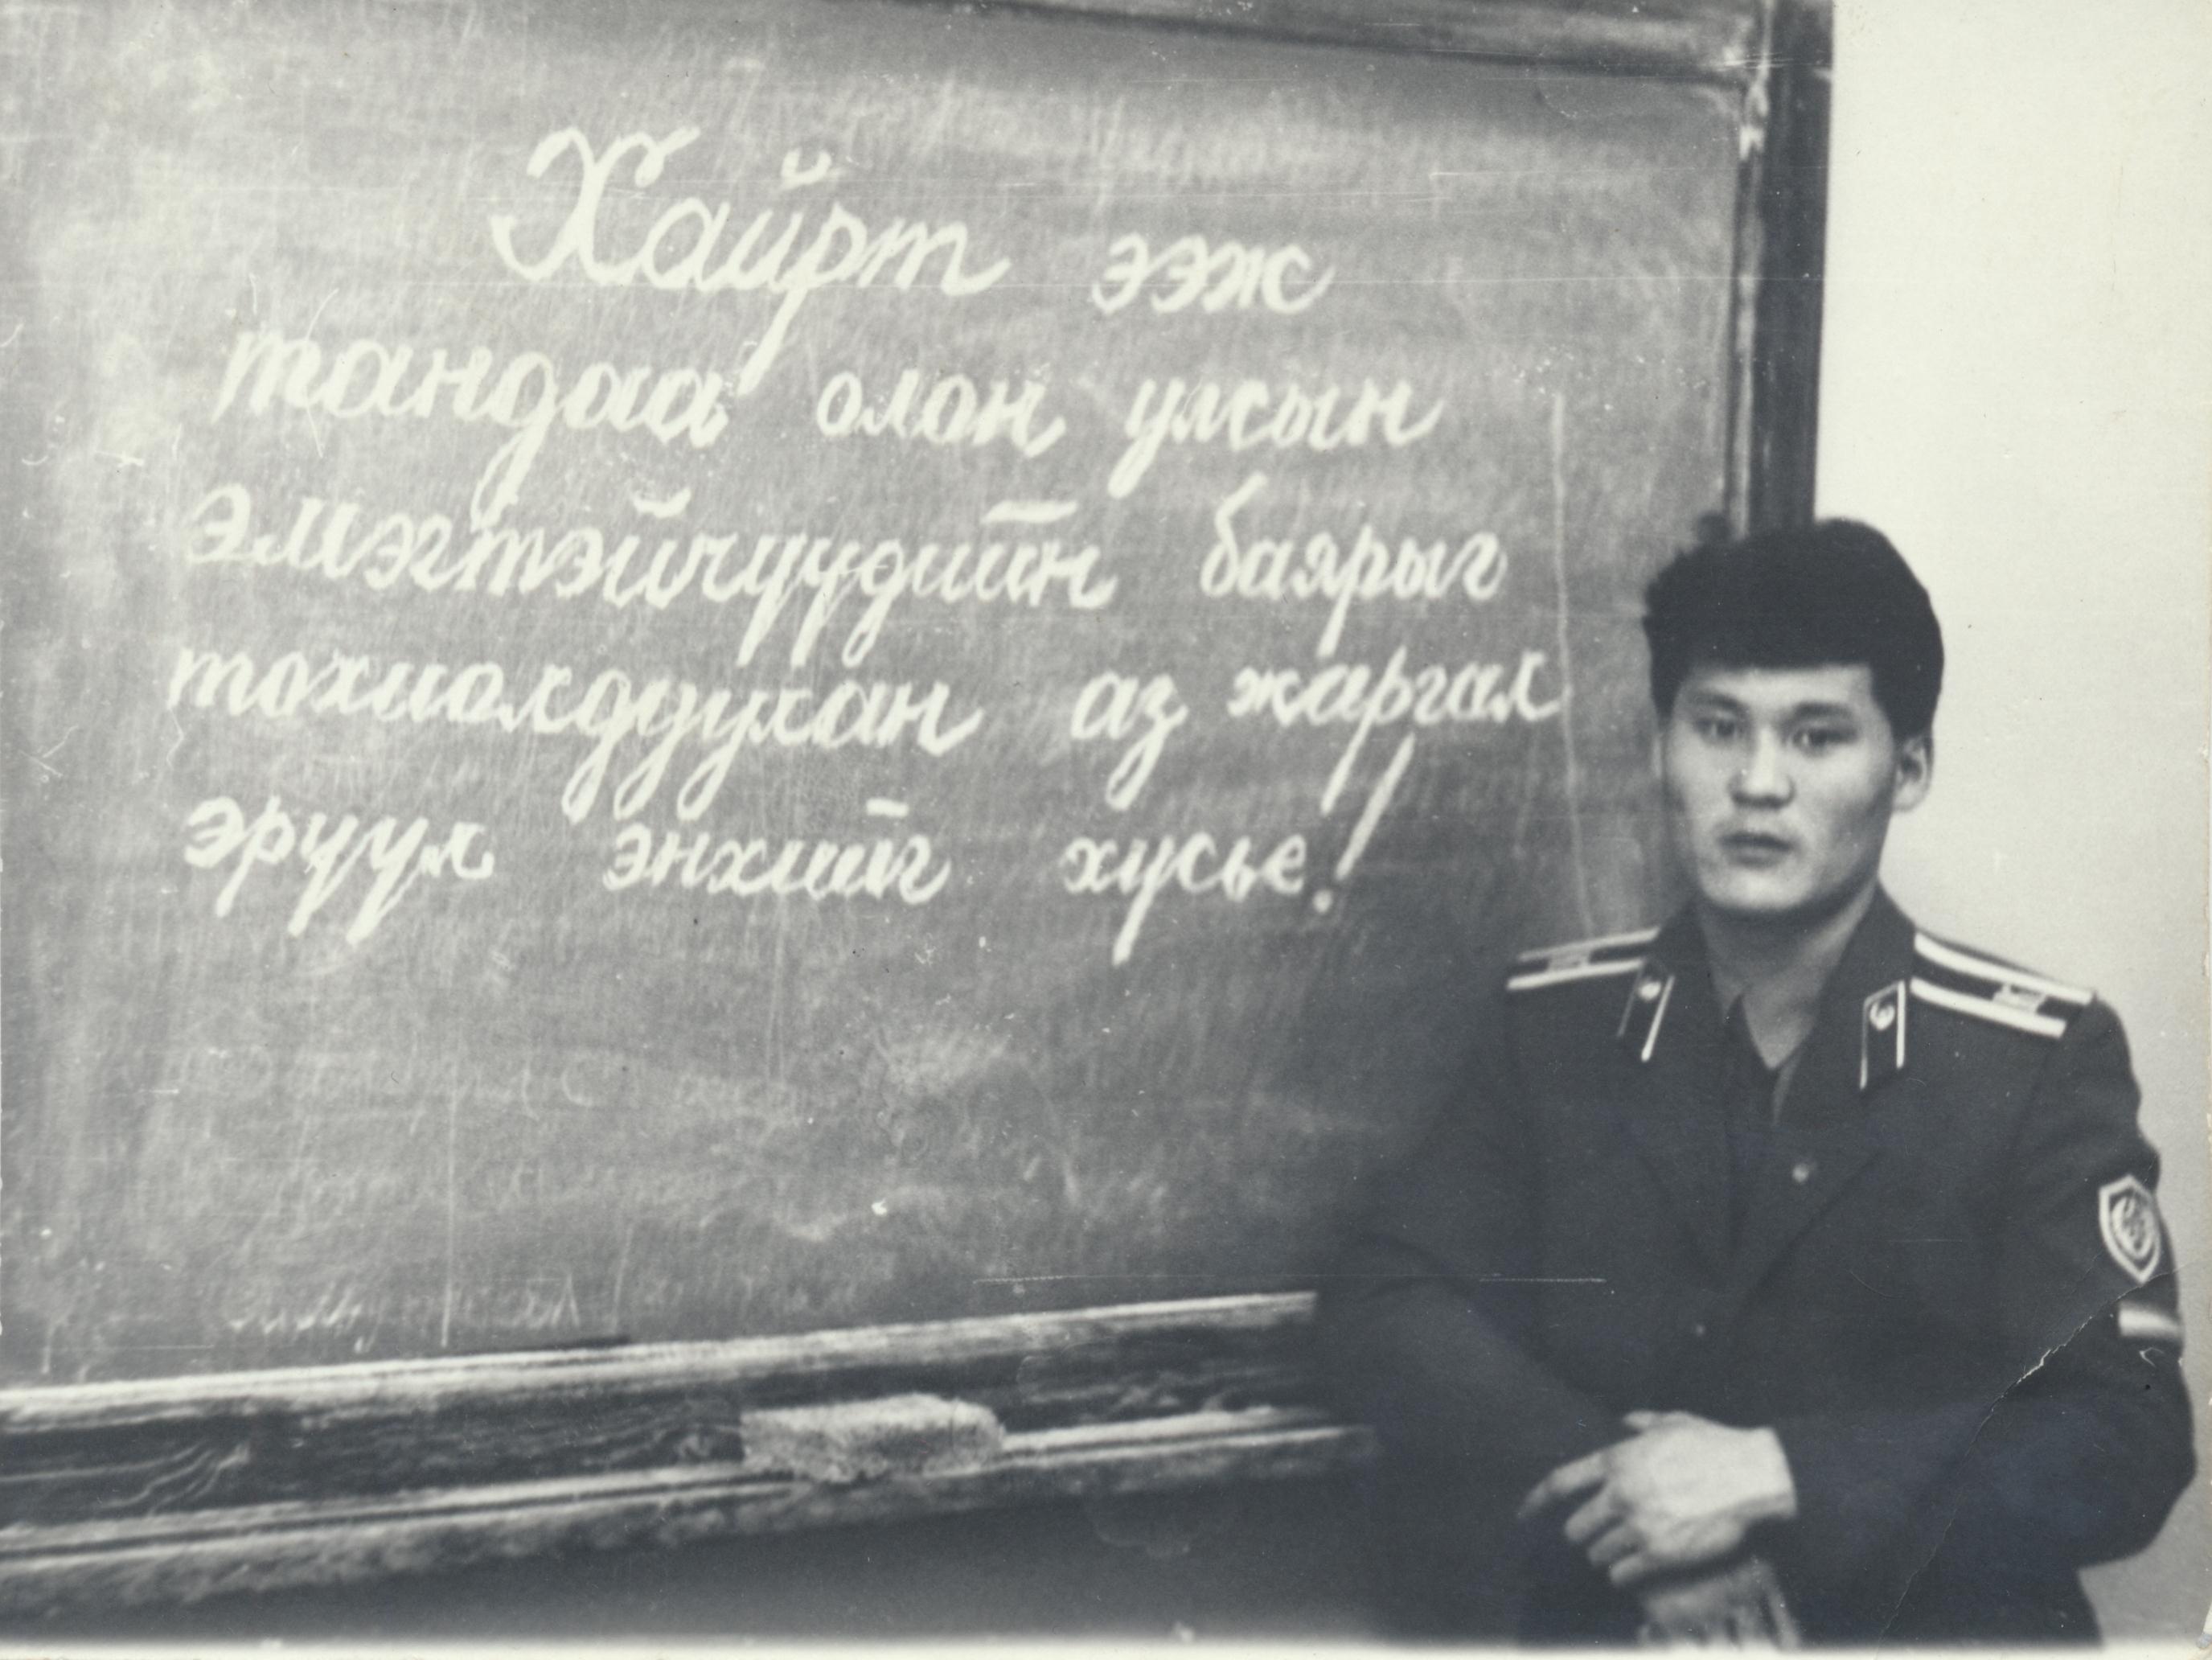 Хайрт ээж
тандаа олон улсын
эмэгтэйчүүдийн баярыг
тохиолдуулан аз жаргал
эрүүл энхийг хүсье!